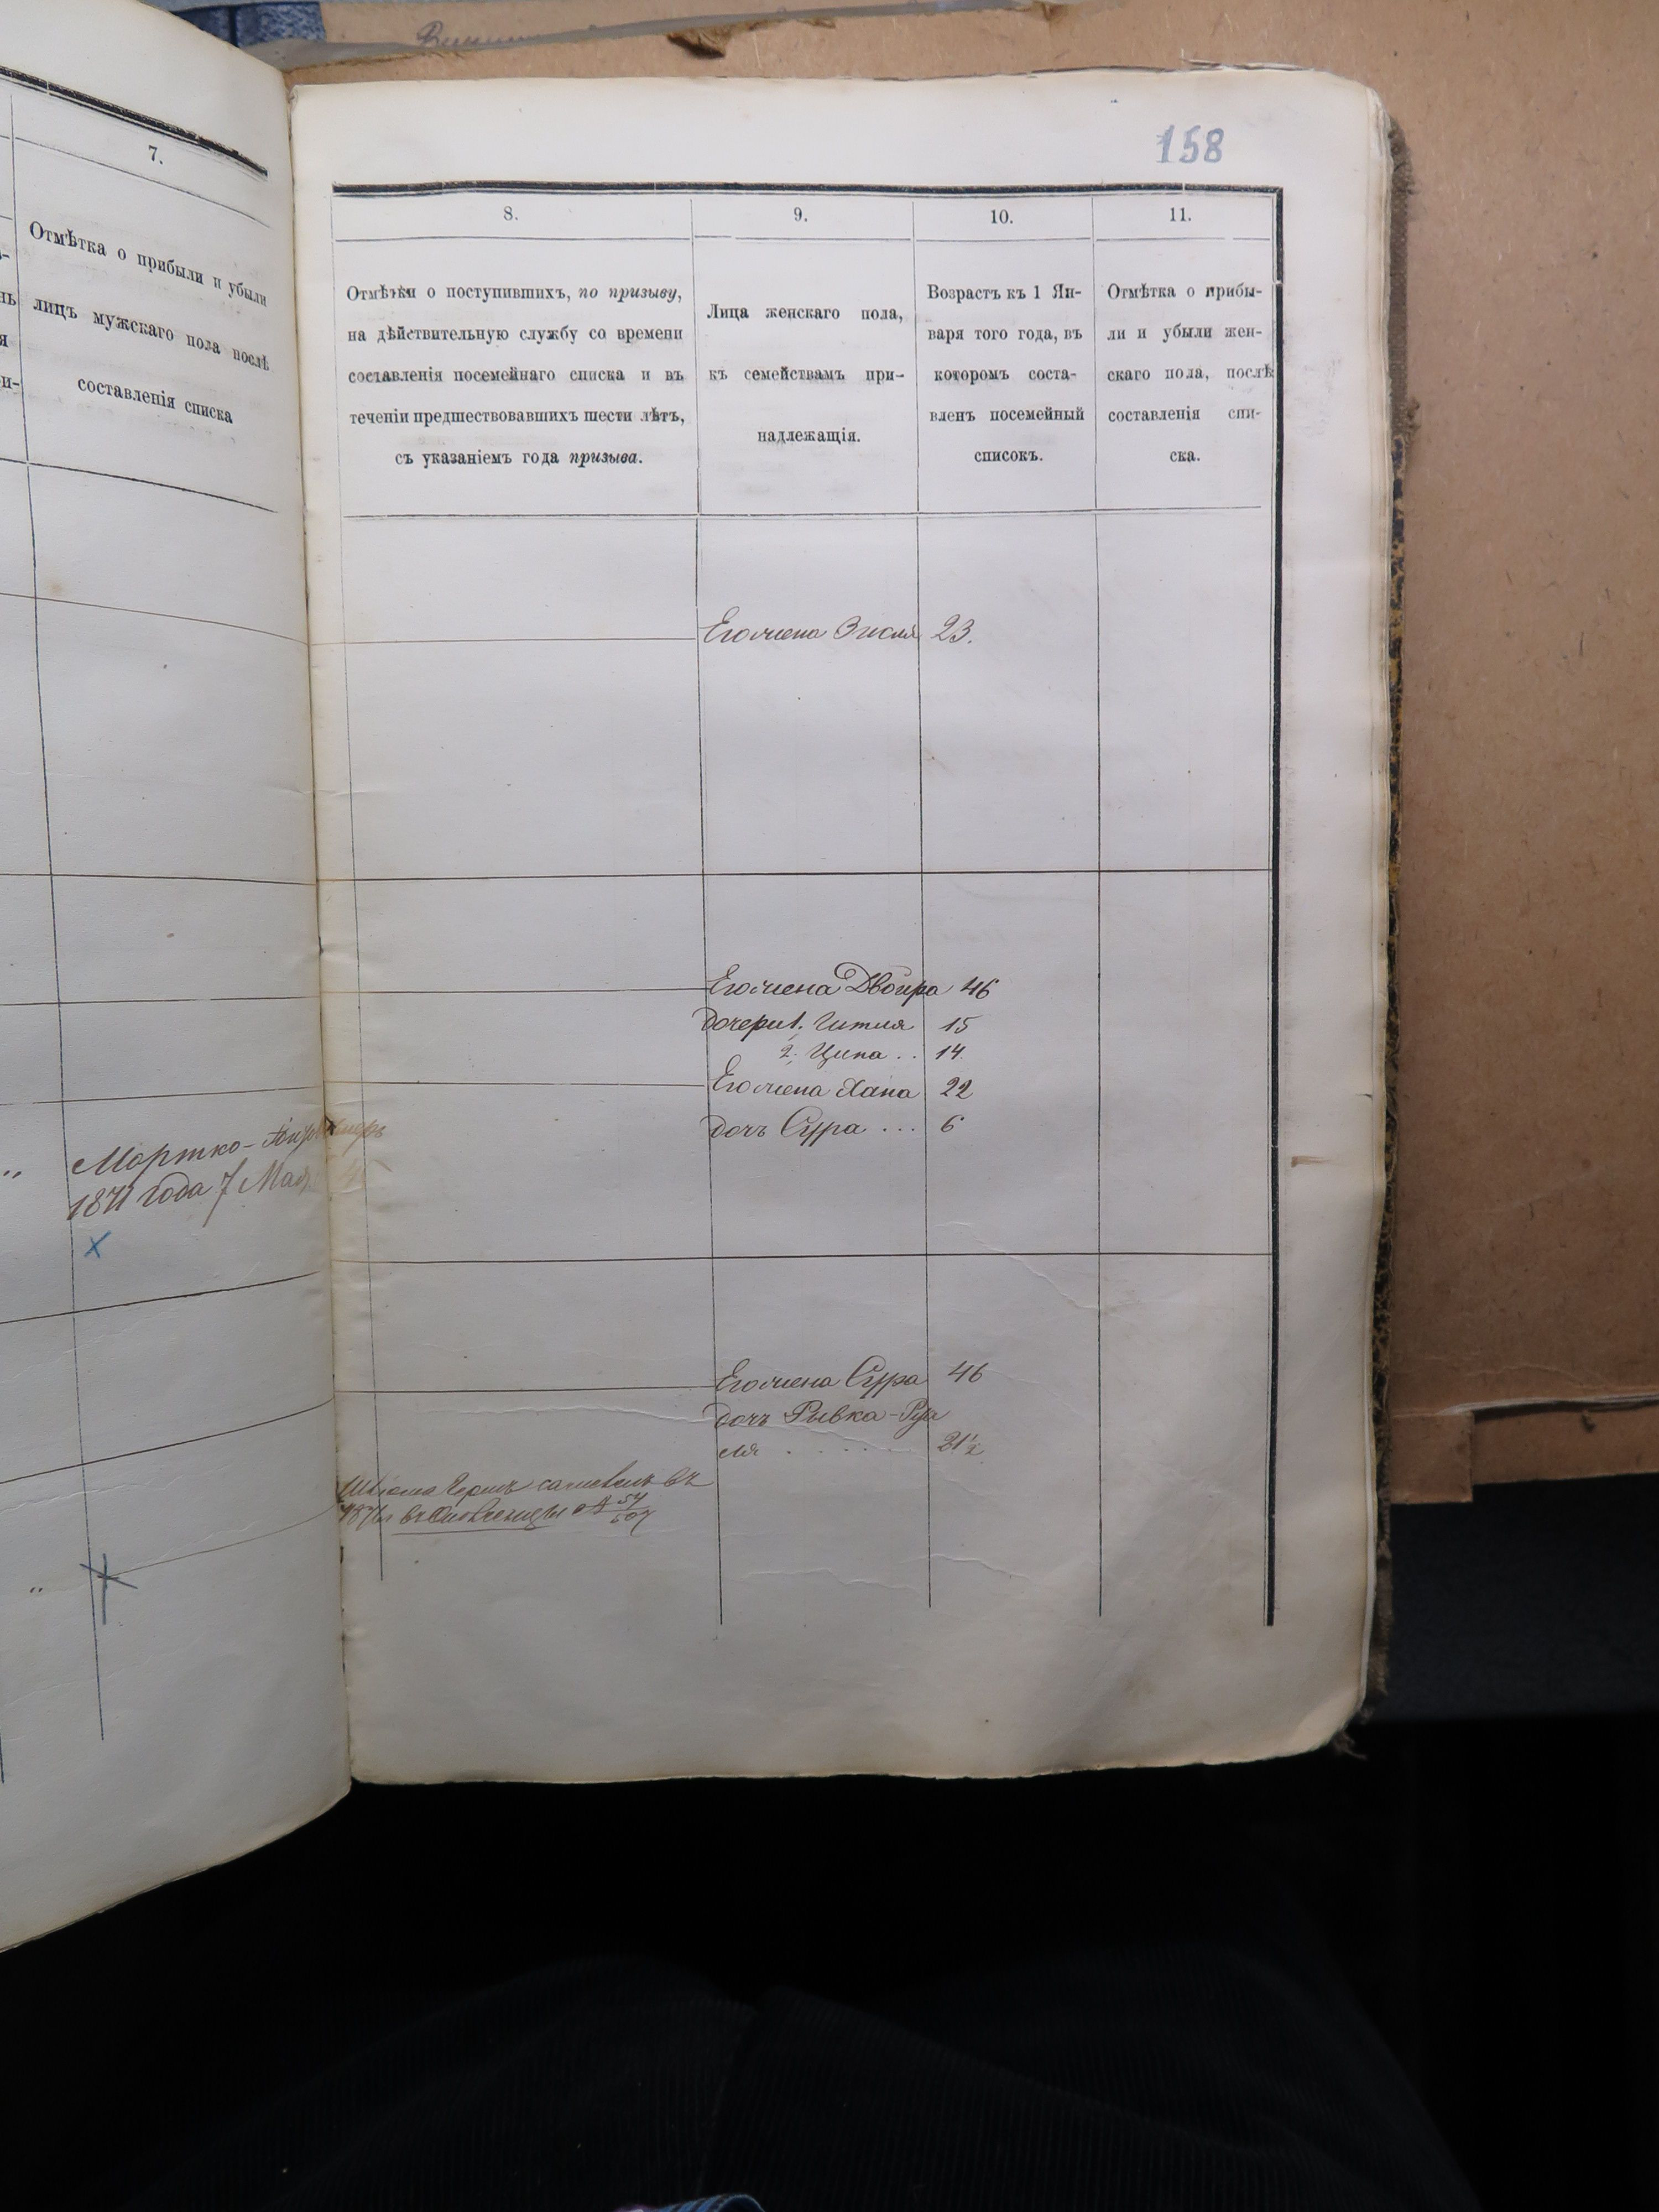 7.
Отмѣтка о прибыли и убыли
лицъ мужскаго пола послѣ
составленія списка
Мортко-
1871 года 7 Мая
158
8.
9.
10.
11.
Отмѣтки о поступившихъ, по призыву,
на дѣйствительную службу со времени
составленія посемейнаго списка и въ
теченіи предшествовавшихъ шести лѣтъ,
съ указаніемъ года призыва.
Лица женскаго пола,
къ семействамъ при-
надлежащія.
Возрастъ къ 1 Ян-
варя того года, въ
которомъ соста-
вленъ посемейный
списокъ.
Отмѣтка о прибы-
ли и убыли жен-
скаго пола, послѣ
составленія спи-
ска.
Его жена 23.
Его жена Двойра 46
дочери 1. Гитля 15
2. Ципа .. 14
Его жена Хана 22
дочь Сура ... 6
Его жена Сура 46
дочь Рывка-
21½
въ